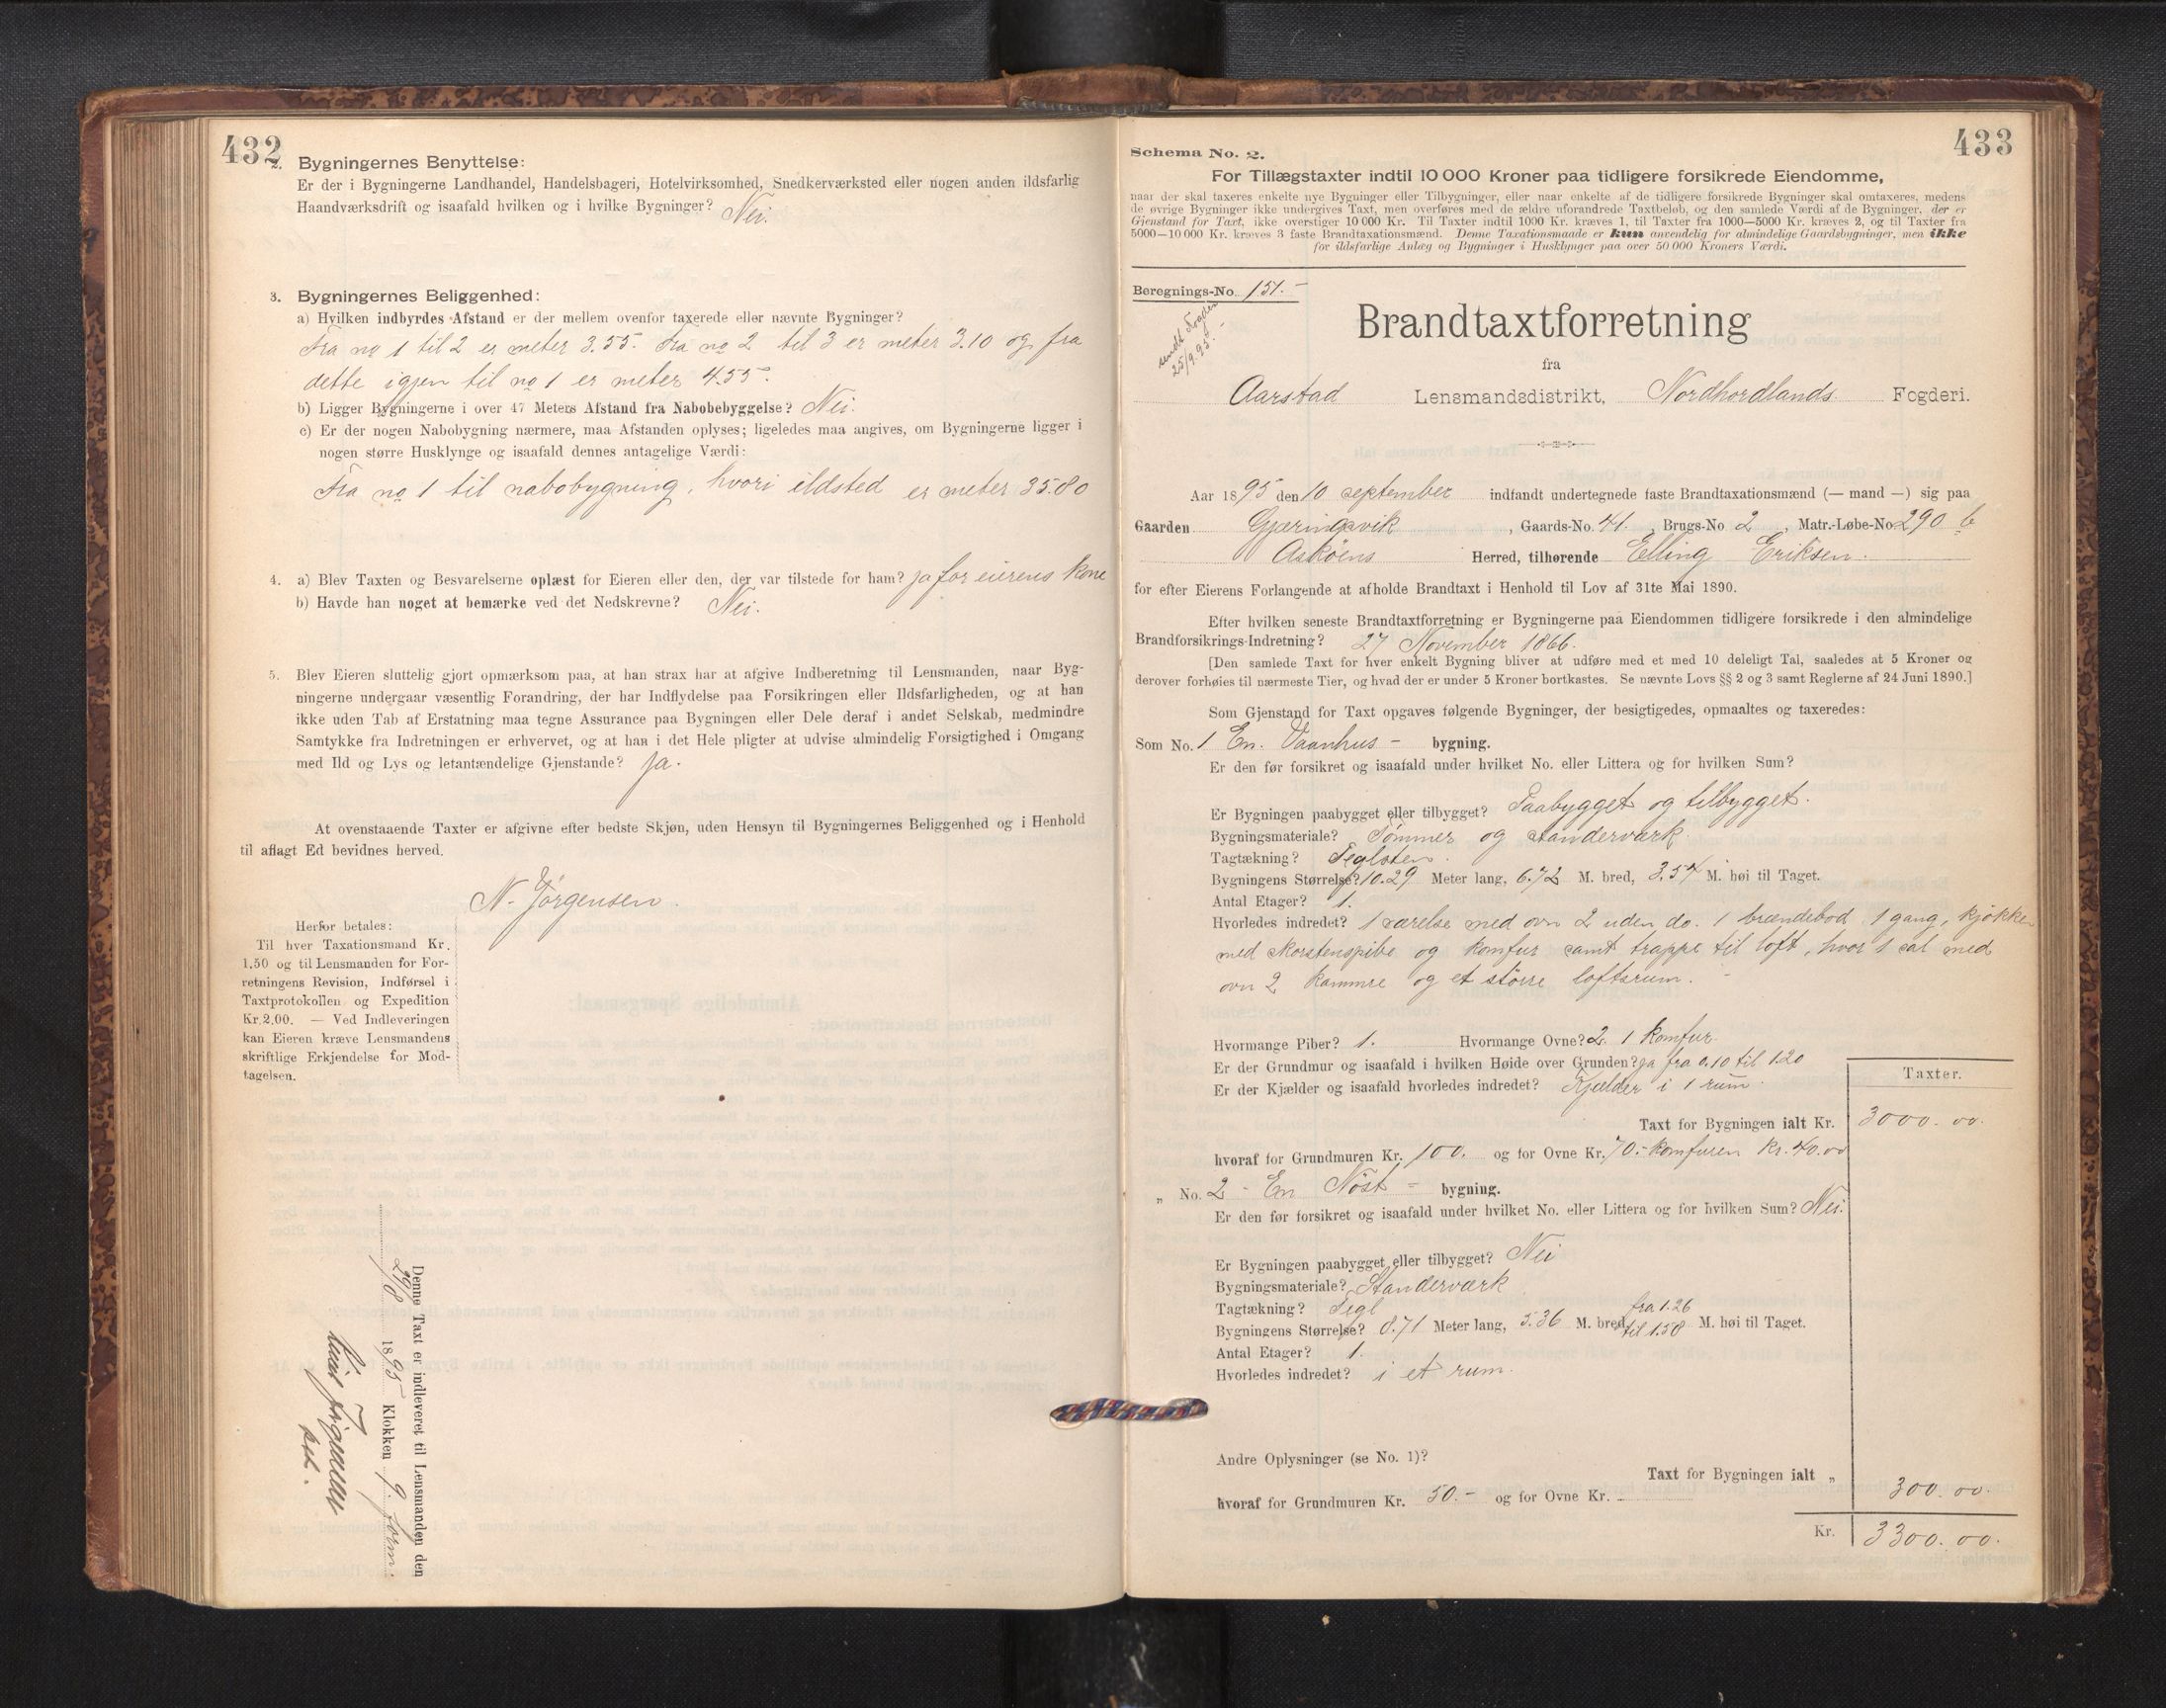 432
2. Bygningernes Benyttelse:
Er der i Bygningerne Landhandel, Handelsbageri, Hotelvirksomhed, Snedkerværksted eller nogen anden ildsfarlig
Haandværksdrift og isaafald hvilken og i hvilke Bygninger? Nei.
3. Bygningernes Beliggenhed:
a) Hvilken indbyrdes Afstand er der mellem ovenfor taxerede eller nævnte Bygninger?
Fra no 1 til 2 er meter 3.55. Fra no 2 til 3 er meter 3.10 og fra
dette igjen til no 1 er meter 4.55.
b) Ligger Bygningerne i over 47 Meters Afstand fra Nabobebyggelse? Nei.
c) Er der nogen Nabobygning nærmere, maa Afstanden oplyses; ligeledes maa angives, om Bygningerne ligger i
nogen større Husklynge og isaafald dennes antagelige Værdi:
Fra no 1 til nabobygning, hvori ildsted er meter 35.80
4. a) Blev Taxten og Besvarelserne oplæst for Eieren eller den, der var tilstede for ham? ja for eierens kone
b) Havde han noget at bemærke ved det Nedskrevne? Nei.
5. Blev Eieren sluttelig gjort opmærksom paa, at han strax har at afgive Indberetning til Lensmanden, naar Byg-
ningerne undergaar væsentlig Forandring, der har Indflydelse paa Forsikringen eller Ildsfarligheden, og at han
ikke uden Tab af Erstatning maa tegne Assurance paa Bygningen eller Dele deraf i andet Selskab, medmindre
Samtykke fra Indretningen er erhvervet, og at han i det Hele pligter at udvise almindelig Forsigtighed i Omgang
med Ild og Lys og letantændelige Gjenstande? ja.
At ovenstaaende Taxter er afgivne efter bedste Skjøn, uden Hensyn til Bygningernes Beliggenhed og i Henhold
til aflagt Ed bevidnes herved.
N. Jørgensen.
Herfor betales:
Til hver Taxationsmand Kr.
1,50 og til Lensmanden for For-
retningens Revision, Indførsel i
Taxtprotokollen og Expedition
Kr. 2,00. — Ved Indleveringen
kan Eieren kræve Lensmandens
skriftlige Erkjendelse for Mod-
tagelsen.
Denne Taxt er indleveret til Lensmanden den
29/8 1895 Klokken 9 form.
433
Schema No. 2.
For Tillægstaxter indtil 10 000 Kroner paa tidligere forsikrede Eiendomme,
naar der skal taxeres enkelte nye Bygninger eller Tilbygninger, eller naar enkelte af de tidligere forsikrede Bygninger skal omtaxeres, medens
de øvrige Bygninger ikke undergives Taxt, men overføres med de ældre uforandrede Taxtbeløb, og den samlede Værdi af de Bygninger, der er
Gjenstand for Taxt, ikke overstiger 10 000 Kr. Til Taxter indtil 1000 Kr. kræves 1, til Taxter fra 1000—5000 Kr. kræves 2, og til Taxter fra
5000—10 000 Kr. kræves 3 faste Brandtaxationsmænd. Denne Taxationsmaade er kun anvendelig for almindelige Gaardsbygninger, men ikke
for ildsfarlige Anlæg og Bygninger i Husklynger paa over 50 000 Kroners Værdi.
Beregnings-No. 151.-
sendt Fogden
25/9.95.-
Brandtaxtforretning
fra
Aarstad Lensmandsdistrikt, Nordhordlands Fogderi.
Aar 1895 den 10 september indfandt undertegnede faste Brandtaxationsmænd (— mand —) sig paa
Gaarden Gjæringsvik, Gaards-No. 41., Brugs-No 2, Matr.-Løbe-No. 290 b
Askøens Herred, tilhørende Elling Eriksen.
for efter Eierens Forlangende at afholde Brandtaxt i Henhold til Lov af 31te Mai 1890.
Efter hvilken seneste Brandtaxtforretning er Bygningerne paa Eiendommen tidligere forsikrede i den almindelige
Brandforsikrings-Indretning? 27 November 1866.
[Den samlede Taxt for hver enkelt Bygning bliver at udføre med et med 10 deleligt Tal, saaledes at 5 Kroner og
derover forhøies til nærmeste Tier, og hvad der er under 5 Kroner bortkastes. Se nævnte Lovs §§ 2 og 3 samt Reglerne af 24 Juni 1890.]
Som Gjenstand for Taxt opgaves følgende Bygninger, der besigtigedes, opmaaltes og taxeredes:
Som No. 1 En. Vaanhus - bygning.
Er den før forsikret og isaafald under hvilket No. eller Littera og for hvilken Sum?
Er Bygningen paabygget eller tilbygget? Paabygget og tilbygget.
Bygningsmateriale? Tømmer og standerværk.
Tagtækning? Teglsten.
Bygningens Størrelse? 10.29 Meter lang, 6.72 M. bred, 3.54 M. høi til Taget.
Antal Etager? 1.
Hvorledes indredet? 1 værelse med ovn 2 uden do. 1 brændebod 1 gang, kjøkken
med skorstenspibe og komfur samt trappe til loft, hvor 1 sal med
ovn 2 kammre og et större loftsrum.
Hvormange Piber? 1. Hvormange Ovne? 2. 1 komfur.
Er der Grundmur og isaafald i hvilken Høide over Grunden? ja fra 0.10 til 1.20
Er der Kjælder og isaafald hvorledes indredet? Kjelder i 1 rum.
Taxter.
Taxt for Bygningen ialt Kr. 3000.00.
hvoraf for Grundmuren Kr. 100. og for Ovne Kr. 70.- komfuren kr. 40.00
„ No. 2 - En Nöst - bygning.
Er den før forsikret og isaafald under hvilket No. eller Littera og for hvilken Sum? Nei.
Er Bygningen paabygget eller tilbygget? Nei
Bygningsmateriale? Standerværk
Tagtækning? Tegl
Bygningens Størrelse? 8.71 Meter lang, 5.36 M. bred, fra 1.26 til 1.58 M. høi til Taget.
Antal Etager? 1.
Hvorledes indredet? i et rum.
Andre Oplysninger (se No. 1)?
Taxt for Bygningen ialt „ 300.00.
hvoraf for Grundmuren Kr. 50.- og for Ovne Kr.
Kr. 3300.00.